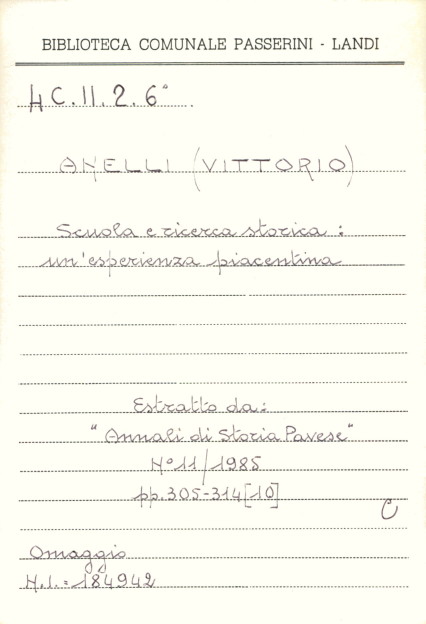 BIBLIOTECA COMUNALE PASSERINI - LANDI
4C.II.2.6°
ANELLI (VITTORIO)
Scuola e ricerca storica :
un'esperienza piacentina
Estratto da:
"Annali di Storia Pavese"
N° 11/1985
pp. 305-314[10]
C
Omaggio
N.I.= 184942